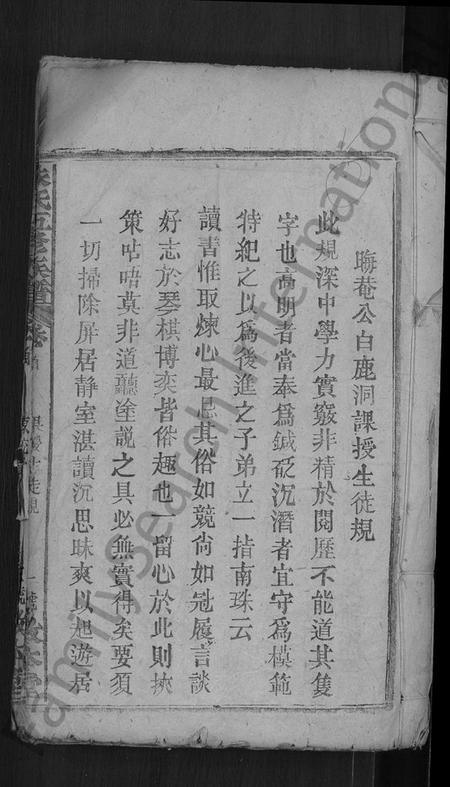 晦菴公白鹿洞課授生徒規
此規深中學力實竅非精於閱歷不能道其隻
字也高明者當奉為鍼砭沉潛者宜守為模範
特紀之以為後進之子弟立一指南珠云
讀書惟取煉心最忌其俗如競尚如冠履言談
好志於琴棋博奕皆俗趣也一留心於此則挾
策呫唔莫非道聽塗說之具必無實得矣要須
一切掃除屏居靜室湛讀沉思昧爽以起遊居
氏五修族譜
FamilySearch International